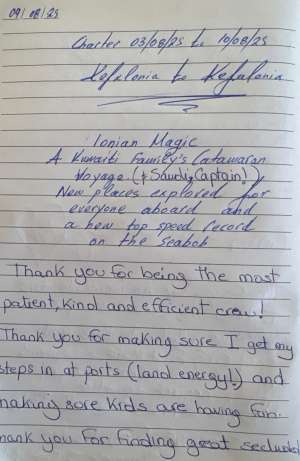 09/08/25
Charter 03/08/25 to 10/08/25
Kefalonia to Kefalonia
Ionian Magic
A Kuwaiti Family's Catamaran
Voyage (& Saudi Captain!)
New places explored for
everyone aboard and
a new top speed record
on the Seabob
Thank you for being the most
patient, kind and efficient crew!
Thank you for making sure I get my
steps in at ports (land energy!) and
making sure kids are having fun.
hank you for finding great secluded